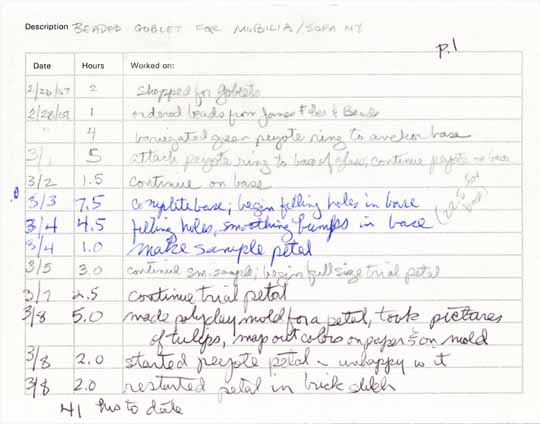 Description BEADED GOBLET FOR MOBILIA/SOFA NY
p.1
Date Hours Worked on:
2/26/07 2 shopped for goblets
2/28/07 1 ordered beads from James & Beads
" 4 variegated green peyote ring to anchor base
3/1 5 attach peyote ring to base of glass, continue peyote on base
3/2 1.5 continue on base
3/3 7.5 complete base; begin filling holes in base
3/4 4.5 filling holes, smoothing bumps in base
3/4 1.0 make sample petal
3/5 3.0 continue sm. sample; begin full size trial petal
3/7 2.5 continue trial petal
3/8 5.0 made polyclay mold for a petal, took pictures
of tulips, map out colors on paper & on mold
3/8 2.0 started peyote petal ~ unhappy w it
3/8 2.0 restarted petal in brick stitch
41 hrs to date